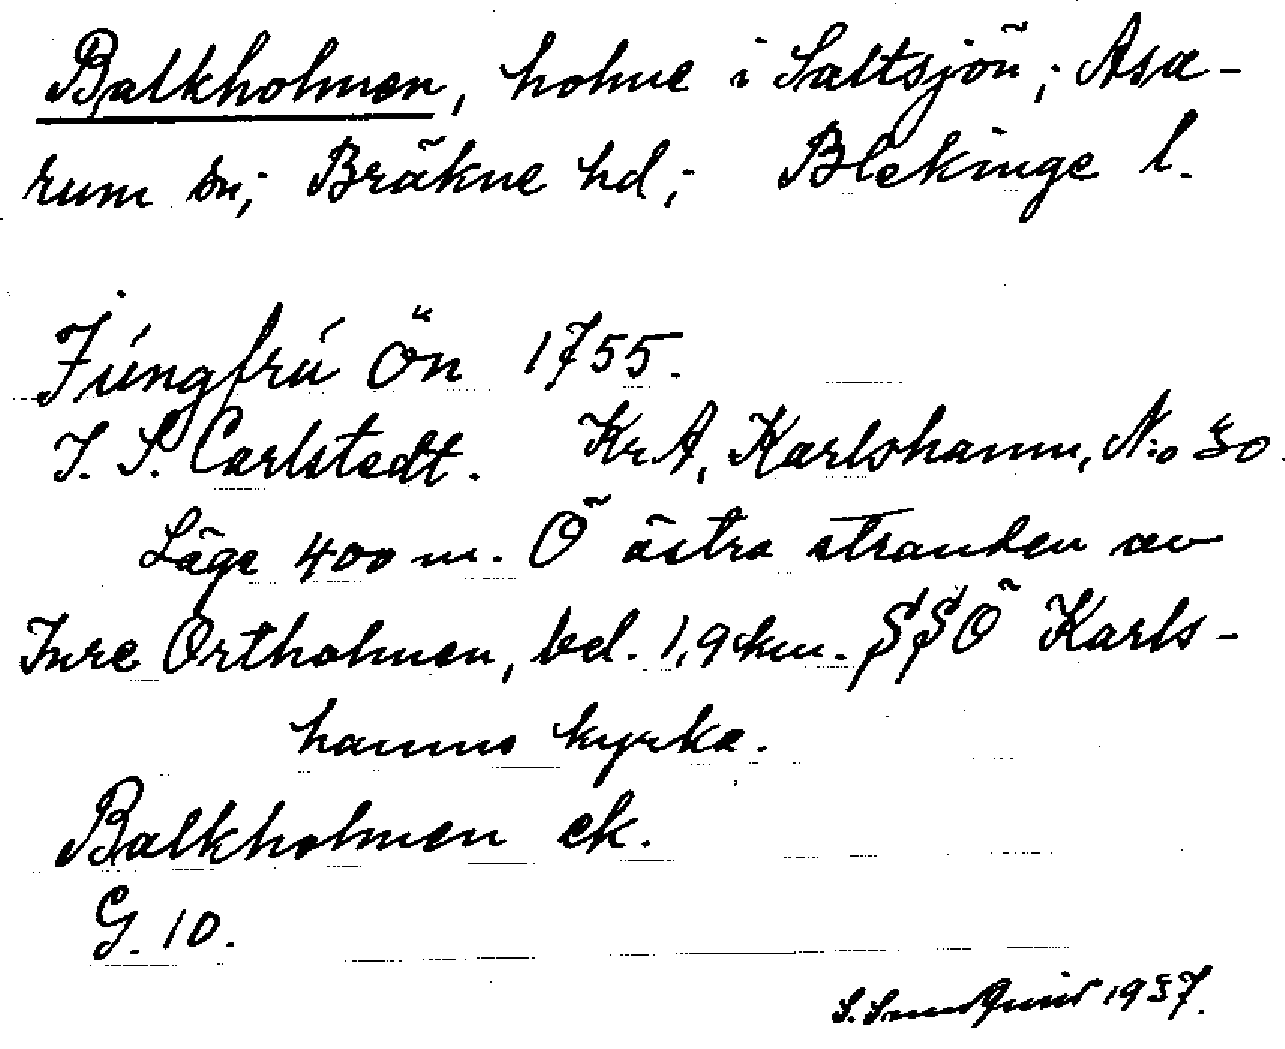 Balkholmen, holme i Saltsjön; Asa-
rum sn; Bräkne hd; Blekinge l.
Jungfru Ön 1755.
J. S. Carlstedt. KrA, Karlshamn, N:o 30
Läge 400 m. Ö östra stranden av
Inre Ortholmen, bel. 1,9 km. SSÖ Karls-
hamns kyrka.
Balkholmen ek.
G. 10.
S. 1937.